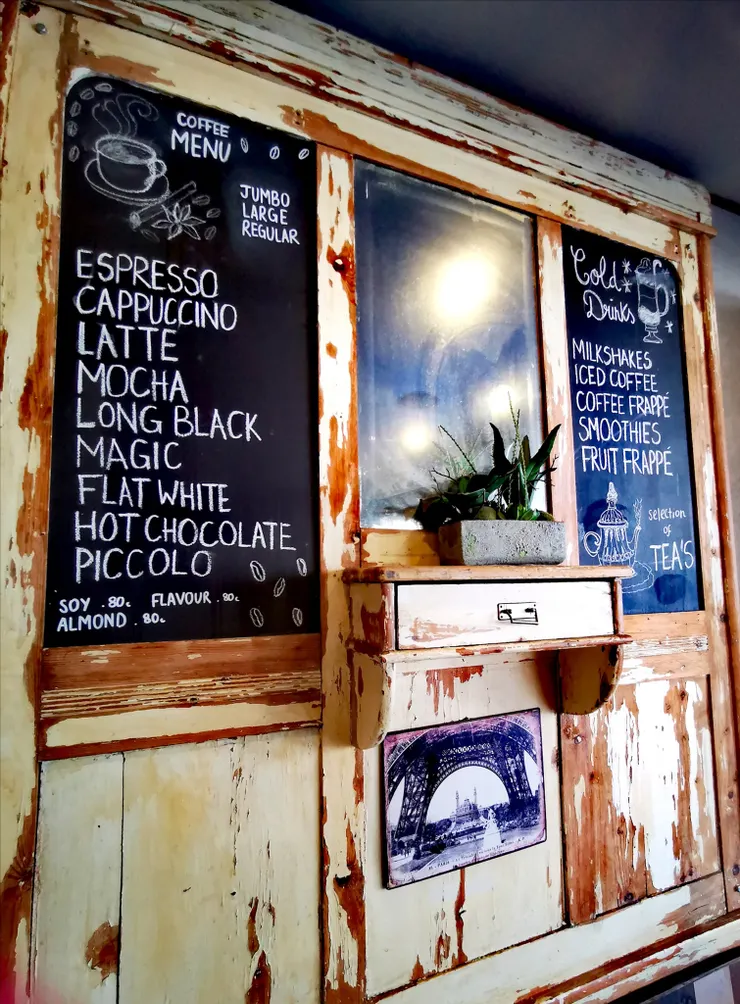 COFFEE
MENU
JUMBO
LARGE
REGULAR
ESPRESSO
CAPPUCCINO
LATTE
MOCHA
LONG BLACK
MAGIC
FLAT WHITE
HOT CHOCOLATE
PICCOLO
SOY .80c FLAVOUR .80c
ALMOND .80c
Cold
Drinks
MILKSHAKES
ICED COFFEE
COFFEE FRAPPÉ
SMOOTHIES
FRUIT FRAPPÉ
selection
of
TEA'S
PARIS